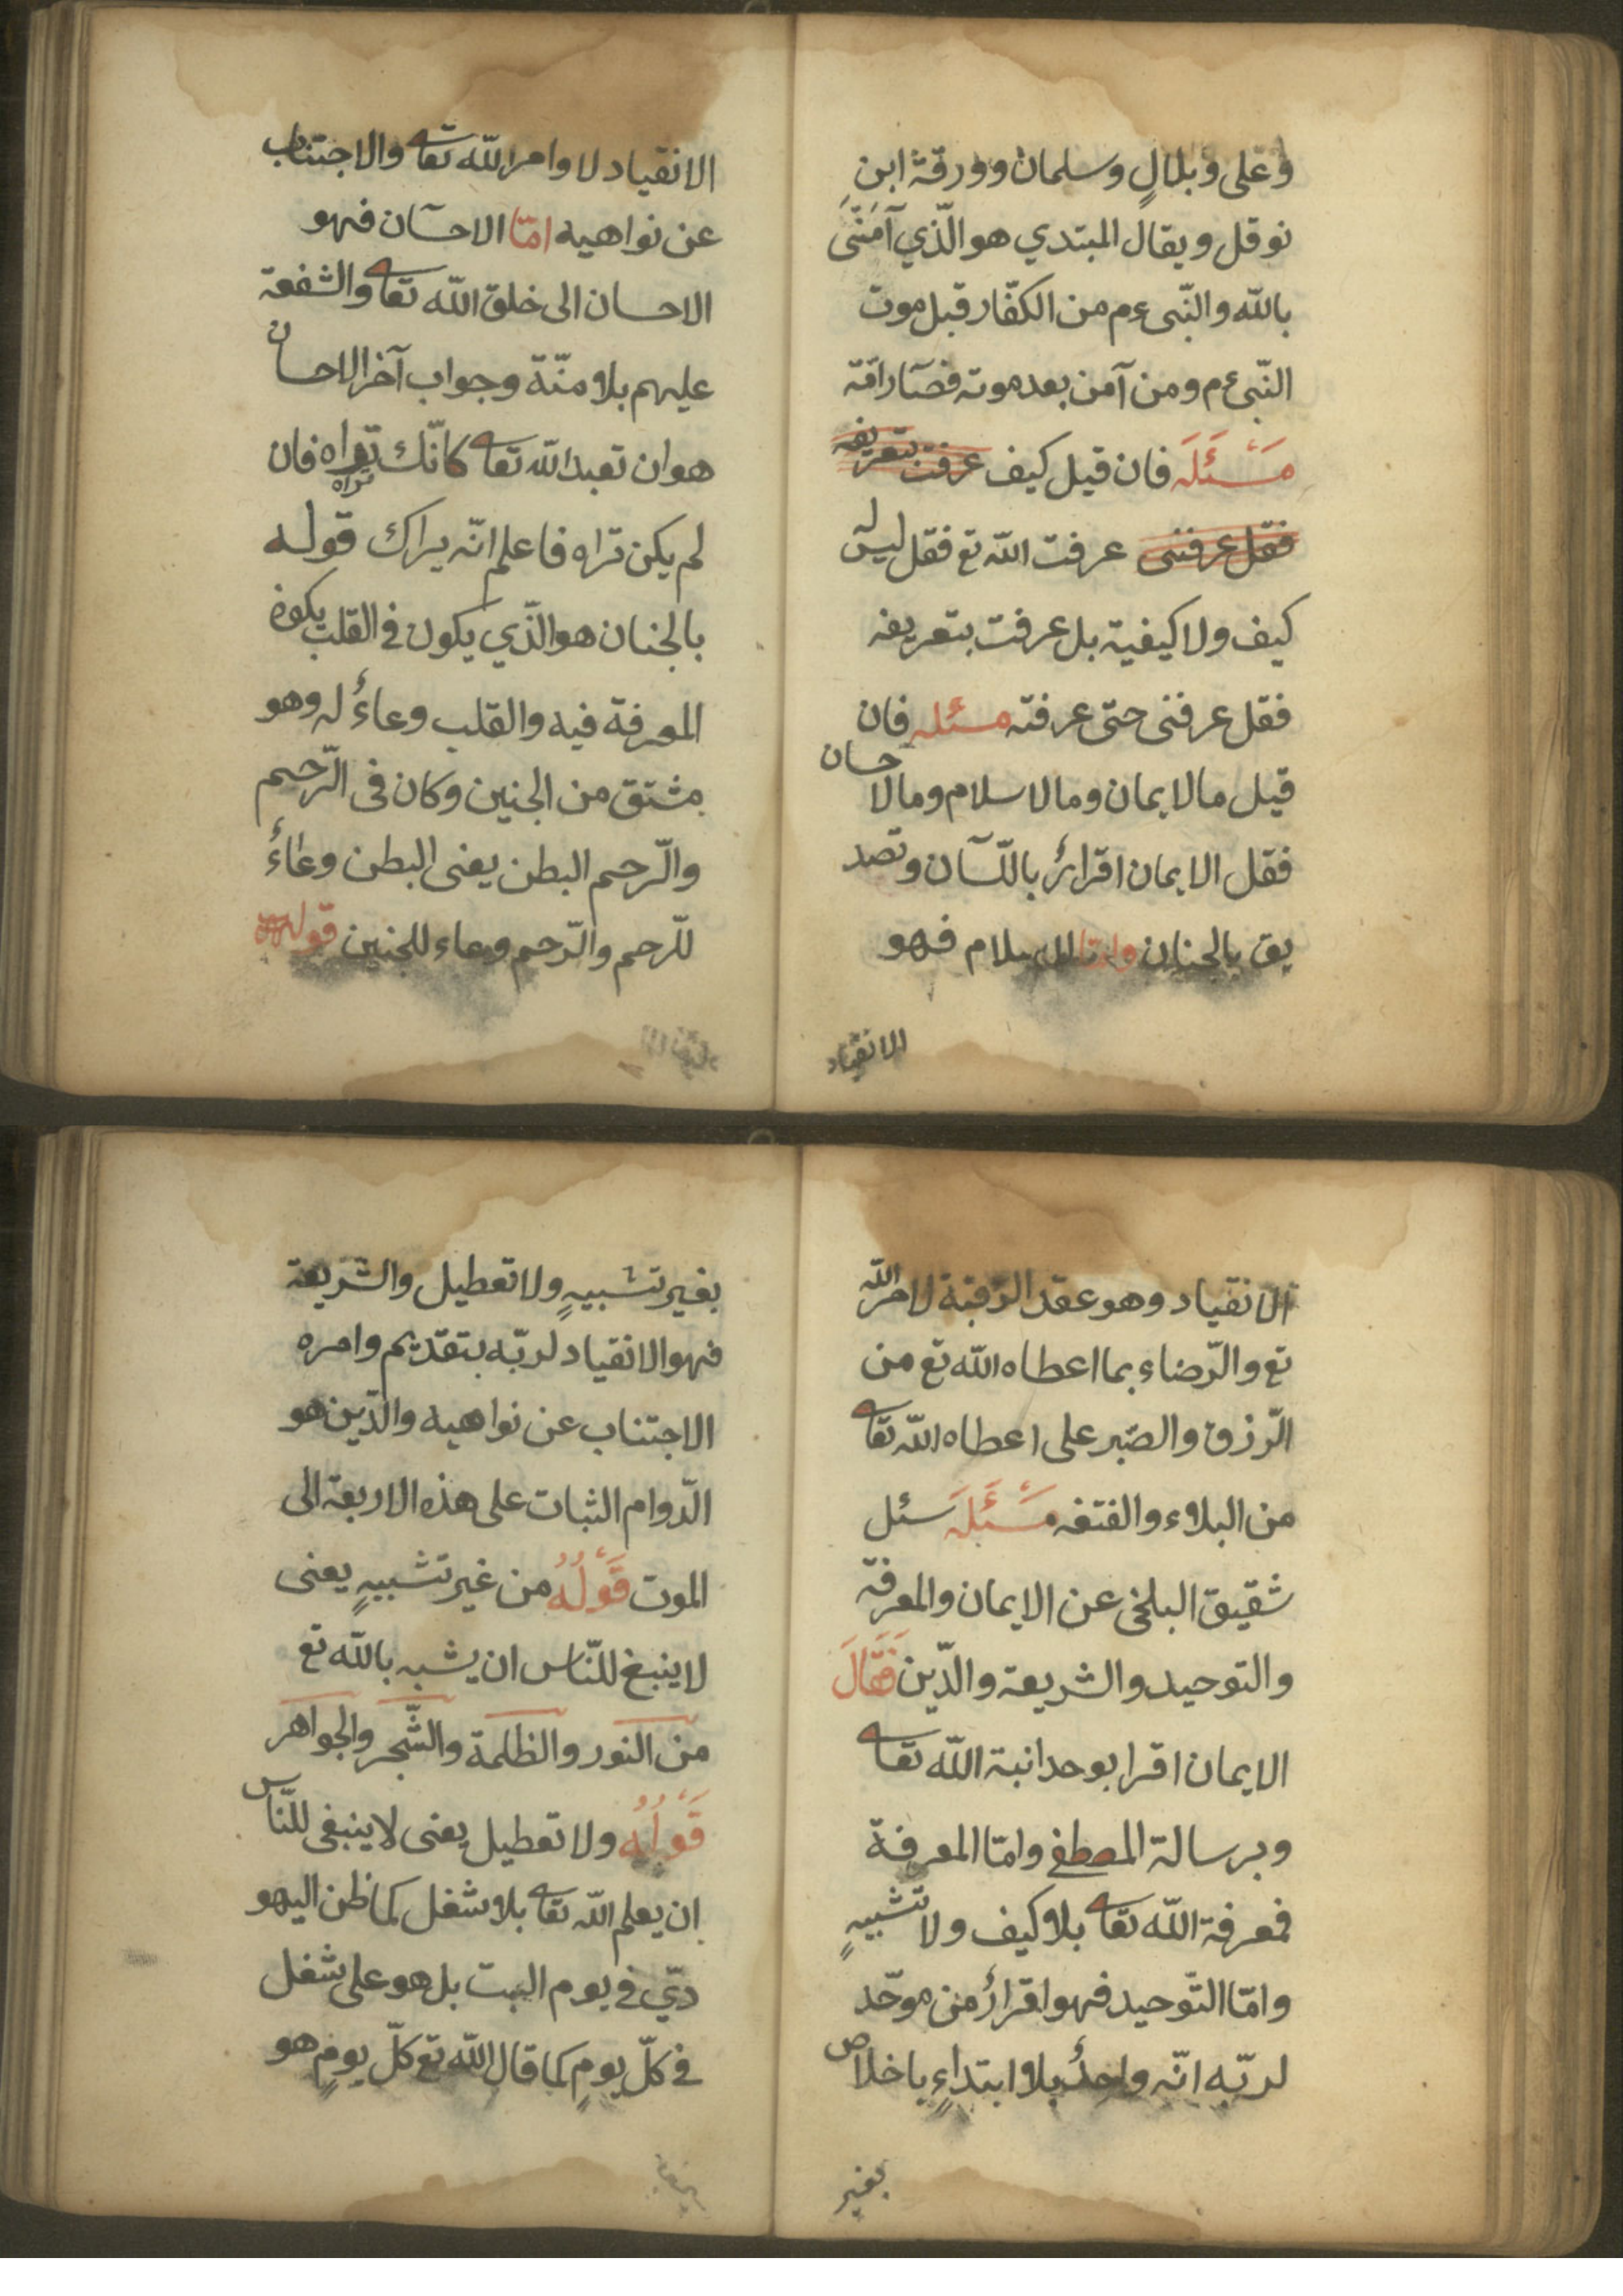 وعلى وبلالٍ وسلمان وورقة ابنِ
نوفل ويقال المبتدي هو الّذي آمَنَّى
بالله والنّبى ءم من الكفّار قبل موت
النّبى ءم ومن آمن بعد موته فصار امّة
مَسْئَلَة فان قيل كيف عرفت بتعريفه
فقل عرفنى عرفت الله تع فقل ليس له
كيف ولا كيفية بل عرفت بتعريفه
فقل عرفنى حتّى عرفته مسئله فان
قيل مالايمان ومالاسلام ومالاحسان
فقل الايمان اقرارٌ باللّسان وتصد
يق بالجنان وامّا الاسلام فهو
الانقياد
الانقياد لاوامر الله تعا والاجتناب
عن نواهيه امّا الاحسان فهو
الاحسان الى خلق الله تعا والشفعة
عليهم بلا منّة وجواب آخر الاحسان
هو ان تعبد الله تعا كانّك تراه فان
تراه
لم يكن تراه فاعلم انّه يراك قوله
بالجنان هو الّذي يكون فى القلب يكون
المعرفة فيه والقلب وعاءٌ له وهو
مشتق من الجنين وكان فى الرّحيم
والرّحم البطن يعنى البطن وعاءٌ
للرحم والرّحم وعاء للجنين قوله
الانقياد وهو عقد الرّقبة لامر الله
تع والرّضاء بما اعطاه الله تع من
الرّزق والصّبر على اعطاه الله تعا
من البلاء والفتنه مَسْئَلَة سئل
شقيق البلخى عن الايمان والمعرفة
والتوحيد والشريعة والدّين فَقَالَ
الايمان اقرا بوحدانية الله تعا
وبرسالة المصطفى وامّا المعرفة
فمعرفة الله تعا بلا كيف ولا تشبيهٍ
وامّا التّوحيد فهو اقرارٌ من موحّد
لربّه انّه واحدٌ بلا ابتداءٍ باخلاص
بغير
بغير تشبيهٍ ولا تعطيل والشّريعة
فهو الانقياد لربّه بتقديم وامره
الاجتناب عن نواهيه والدّين هو
الدّوام الثبات على هذه الاربعة الى
الموت قَوْلُهُ من غير تشبيهٍ يعنى
لا ينبغ للنّاس ان يشبه بالله تع
من النور والظلمة والشّجر والجواهر
قَوْلُهُ ولا تعطيل يعنى لا ينبغى للنّاس
ان يعلم الله تعا بلا شغل كما ظن اليهو
ديّ فى يوم البيت بل هو على شغل
فى كلّ يومٍ كما قال الله تع كلّ يومٍ هو